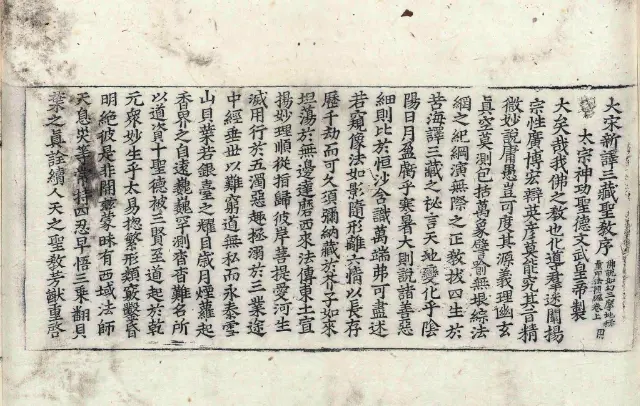 大宋新譯三藏聖教序 佛說如幻三摩地無
量印法門經卷上 用
太宗神功聖德文武皇帝製
大矣哉我佛之教也化導羣迷闡揚
宗性廣博宏辯英彥莫能究其旨精
微妙說庸愚豈可度其源義理幽玄
真空莫測包括萬象譬喻無垠綜法
網之紀綱演無際之正教拔四生於
苦海譯三藏之秘言天地變化乎陰
陽日月盈虧乎寒暑大則說諸善惡
細則比於恒沙含識萬端弗可盡述
若窺像法如影隨形離六情以長存
歷千劫而可久須彌納藏於芥子如來
坦蕩於無邊達磨西來法傳東土宣
揚妙理順從指歸彼岸菩提愛河生
滅用行於五濁惡趣拯溺於三業途
中經垂世以難窮道無私而永泰雪
山貝葉若銀臺之耀目歲月煙蘿起
香界之自遠巍巍罕測杳杳難名所
以道資十聖德被三賢至道起於乾
元衆妙生乎太易揔繁形類竅鑿昏
明絕彼是非開蒙昧有西域法師
天息災等常持四忍早悟三乘翻貝
葉之真詮續人天之聖教芳猷重啓